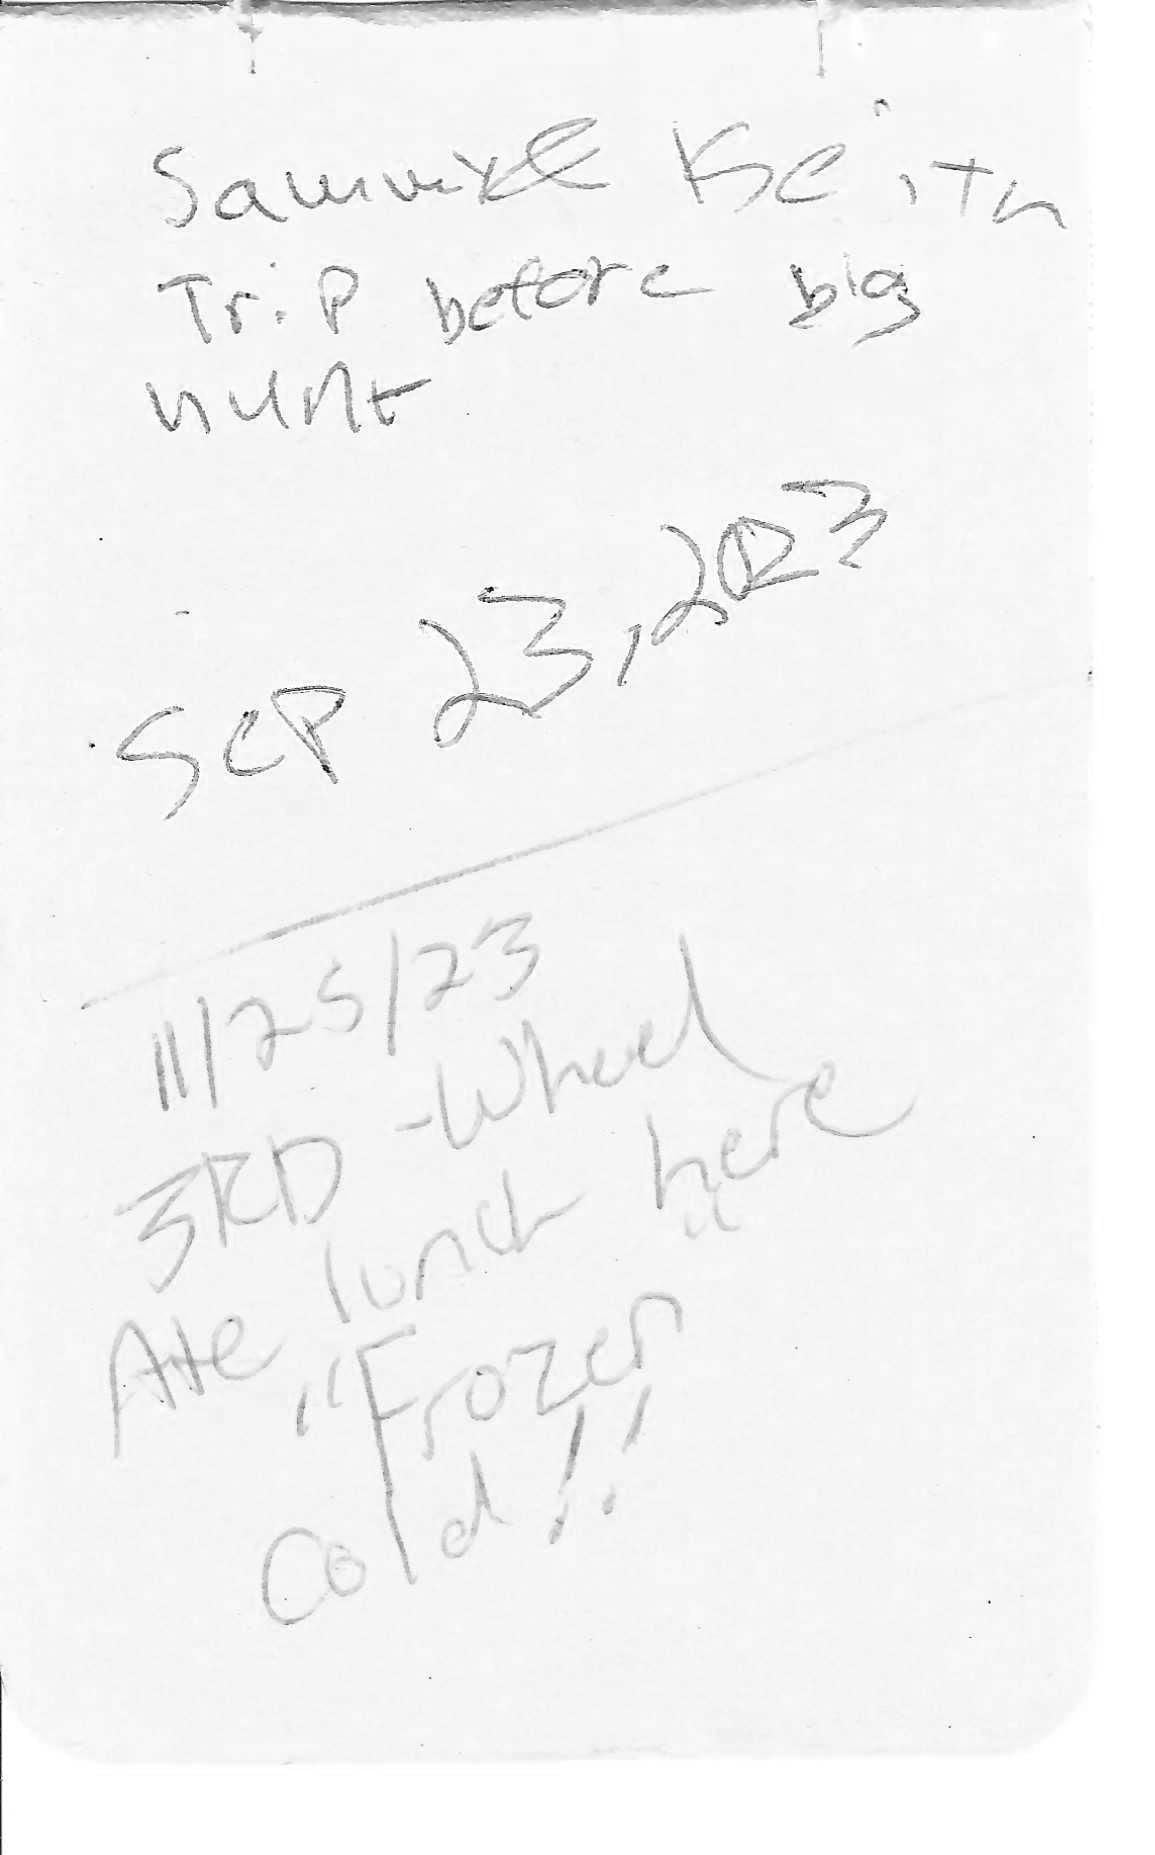 Keith
Trip before big
hunt
Sep 23, 2023
11/25/23
3RD-Wheel
Ate lunch here
"Frozen
Cold!!